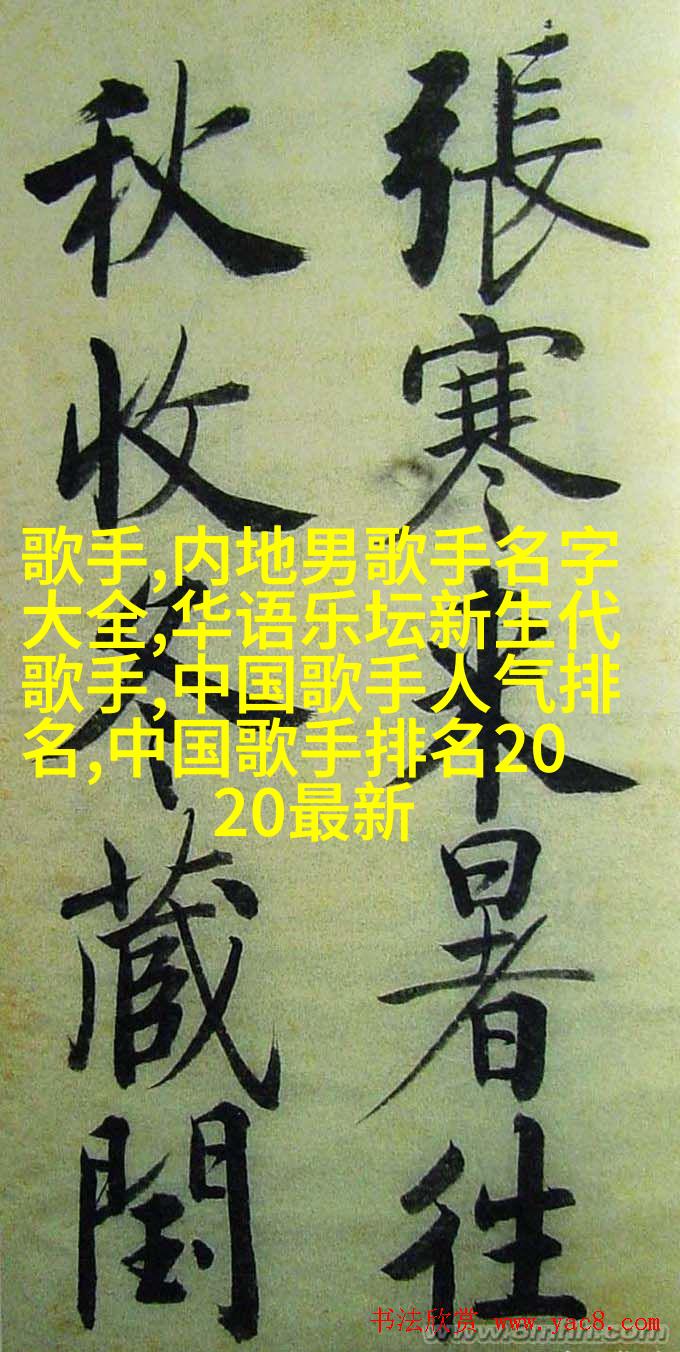 張寒来暑往
秋收冬蔵閏
歌手,内地男歌手名字
大全,华语乐坛新生代
歌手,中国歌手人气排
名,中国歌手排名20
20最新
书法欣赏 www.yac8.com